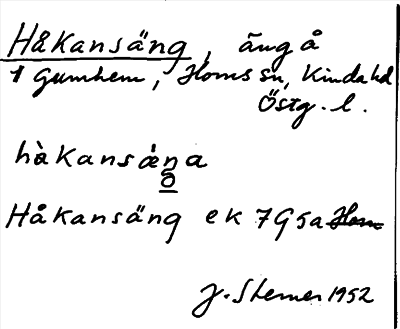 Håkansäng, äng å
1 Gumhem, Horns sn, Kinda hd
Östg. l.
hàkansǽŋa
o
Håkansäng ek 7G5a
J. Sterner 1952